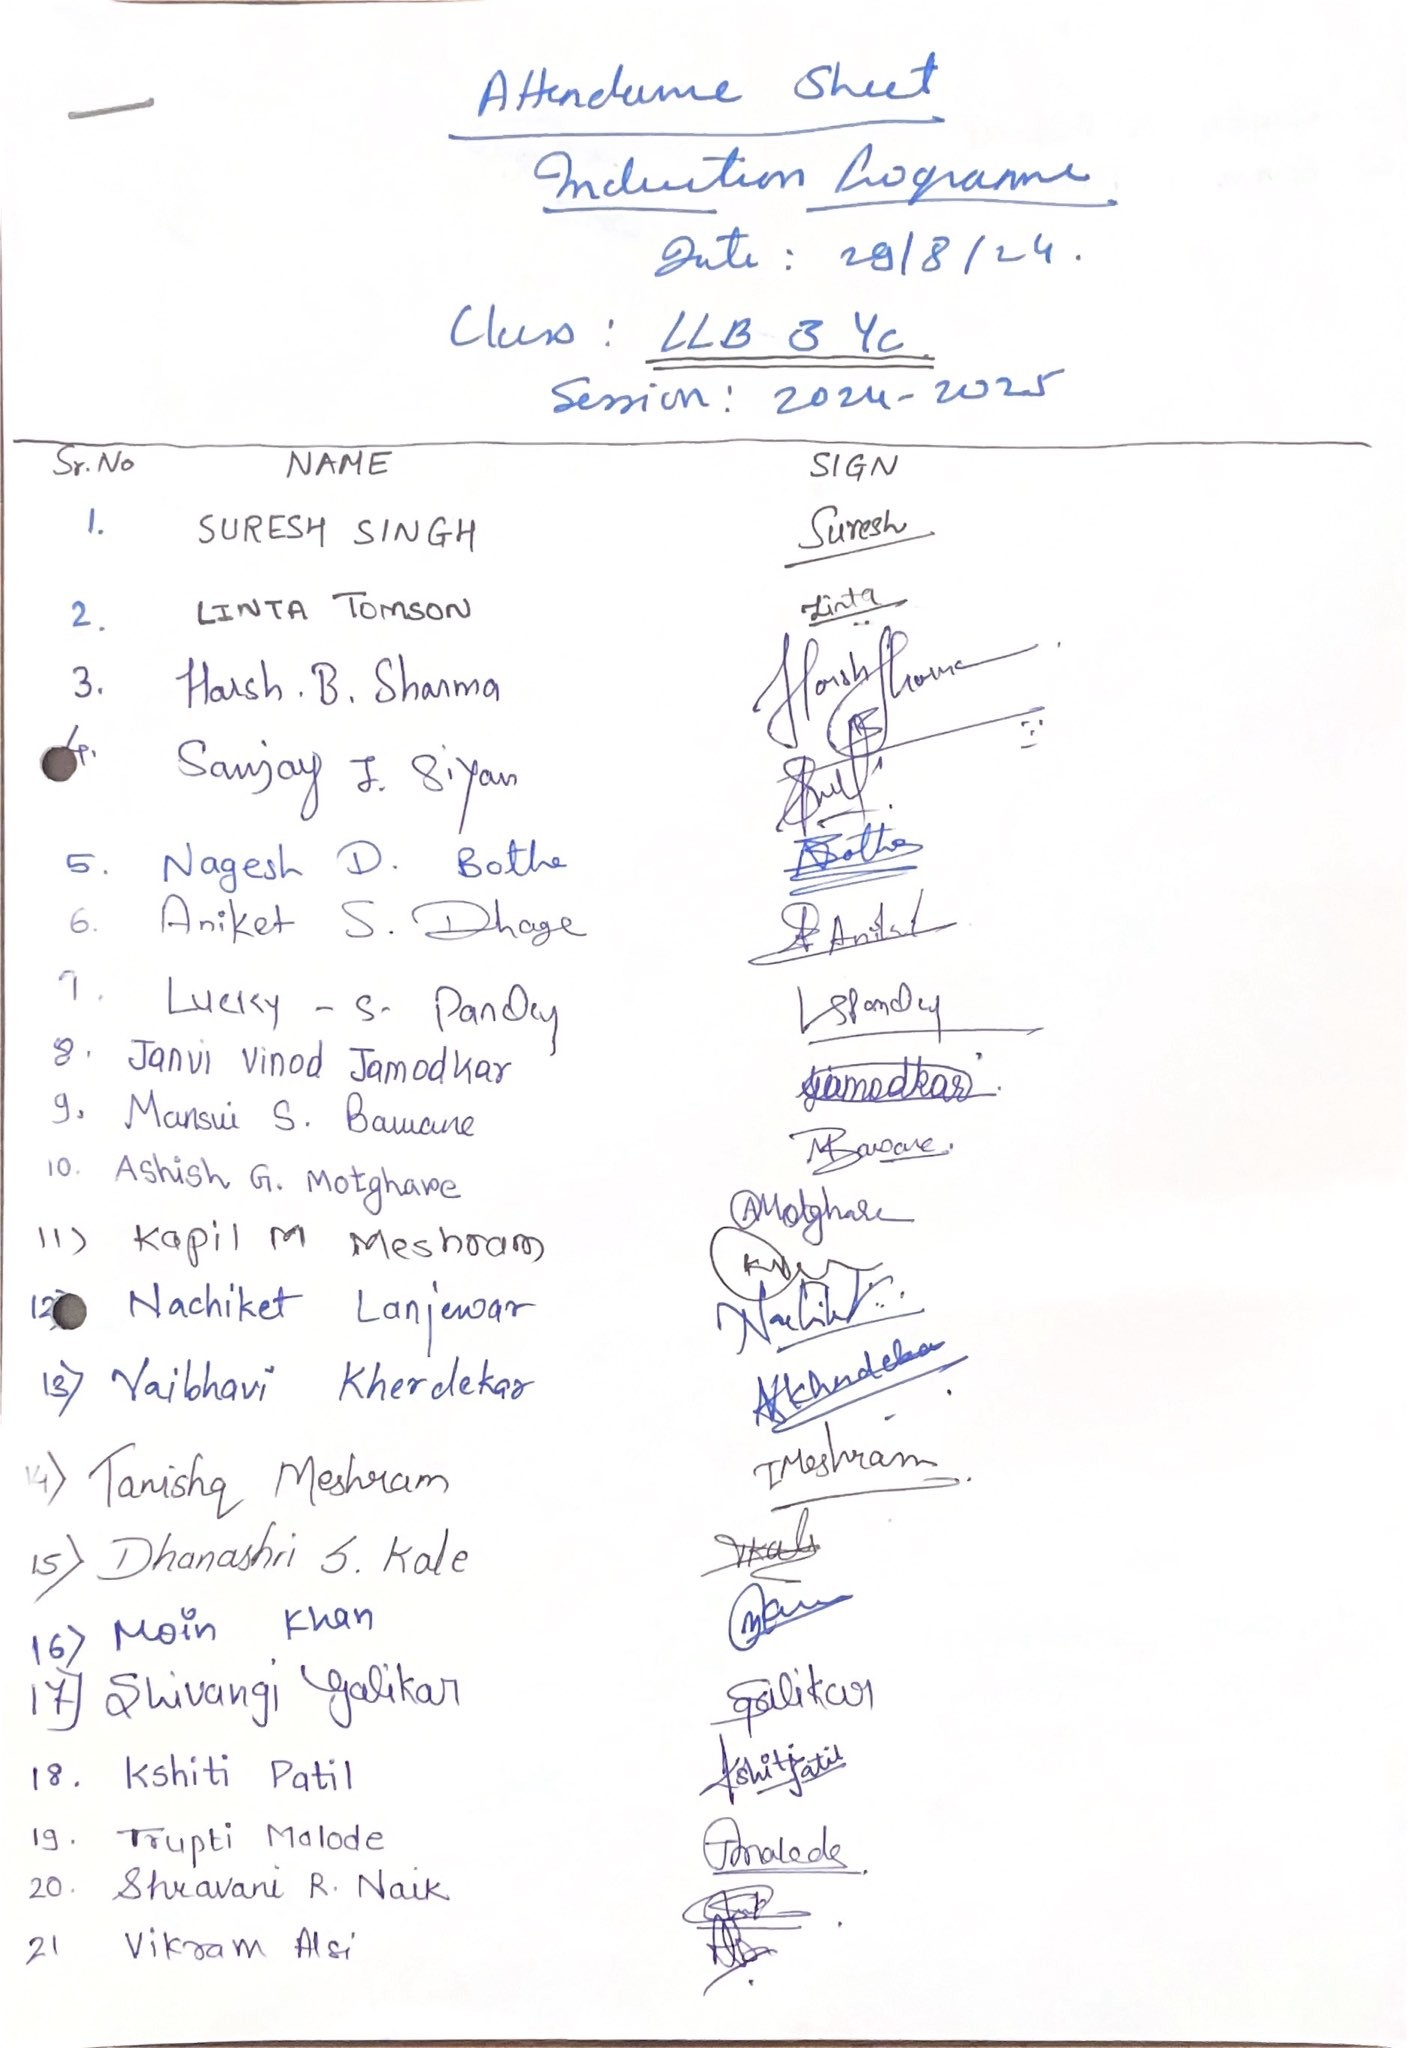 Attendance Sheet
Induction Programme
Date : 29/8/24.
Class : LLB 3 Yc
Session : 2024-2025
Sr. No NAME SIGN
1. SURESH SINGH Suresh
2. LINTA TOMSON Linta
3. Harsh. B. Sharma Harsh Sharma
4. Sanjay J. Siyan
5. Nagesh D. Bothe Bothe
6. Aniket S. Dhage Aniket
7. Lucky - S. Pandey LSPandey
8. Janvi Vinod Jamodkar Jamodkar
9. Mansvi S. Bawane MBawane.
10. Ashish G. Motghare AMotghare
11) Kapil M Meshram
12) Nachiket Lanjewar Nachiket
13) Vaibhavi Kherdekar
14) Tanishq Meshram TMeshram
15) Dhanashri S. Kale
16) Moin Khan
17) Shivangi Galikar Galikar
18. Kshiti Patil Kshiti Patil
19. Trupti Malode Tmalode
20. Shravani R. Naik
21 Vikram Alsi